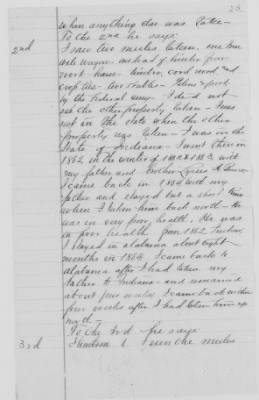 28
when anything else was taken
To the 2nd he says:
2nd I saw two mules taken, one
wagon, instead of timber for
work house timber, cord wood and
crop ties - two stables -
by the Federal army - I did not
see the other property taken - I was
not in the state when the other
property was taken - I was in the
State of Indiana - I went there in
1862 in the winter of 1862 with
my father and brother
I came back in 1864 with my
father and stayed but a short time
when I taken him back north - He
was in very poor health. He was
in poor health from 1862
I stayed in Alabama about eight
months in 1864 I came back to
Alabama after I had taken my
father to Indiana - and remained
about four weeks I came back within
four weeks after I had taken him up
north -
To the 3rd he says
3rd I seen the mules